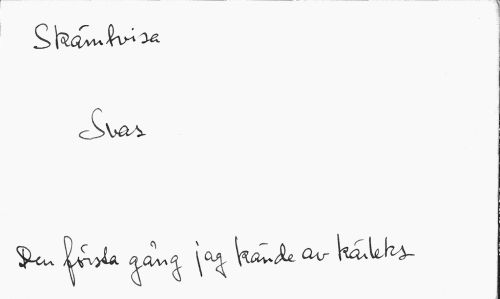 Skämtvisa
Svas
Den första gång jag kände av kärleks